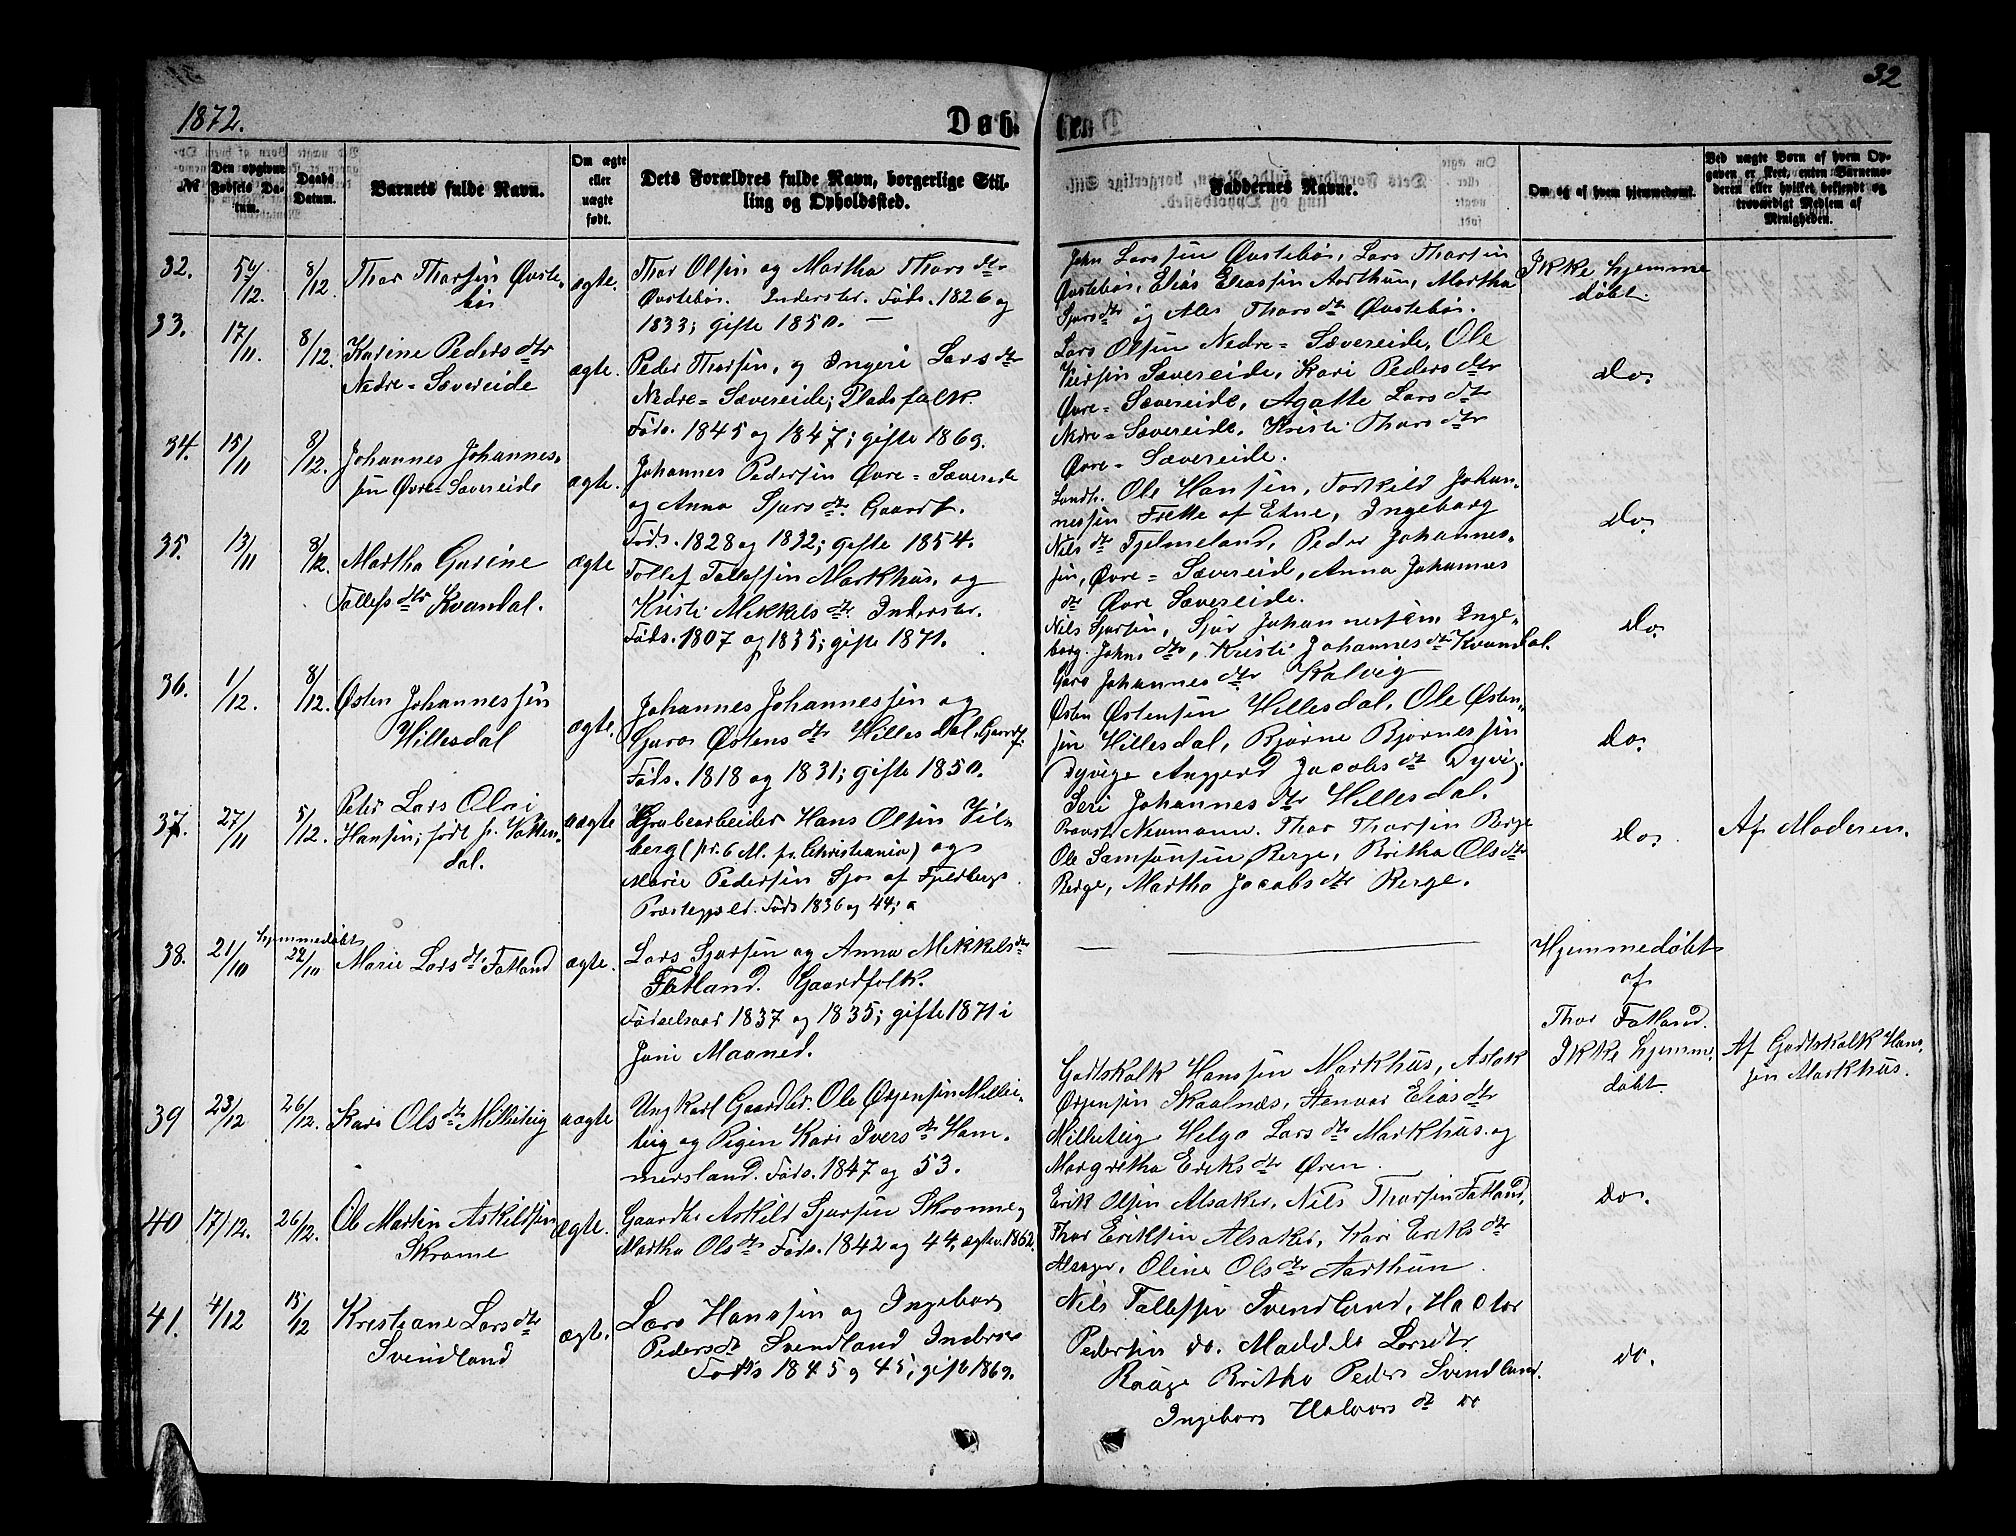 32
1872.
Døb-
te.
№
Den opgivne Fødsels Datum.
Daabs Datum.
Barnets fulde Navn.
Om ægte eller uægte født.
Dets Forældres fulde Navn, borgerlige Stilling og Opholdssted.
Faddernes Navne.
Om og af hvem hjemmedøbt.
Ved uægte Børn af hvem Opgaven er skeet, enten Barnemoderen eller hvilket bekjendt og troværdigt Medlem af Menigheden.
32.
8/12
Thor Thorsen Øvstebø
ægte.
Thor Olsen og Martha Thorsdtr
Øvstebø. Inderster. Føds. 1826 og
1833; gifte 1850.
John Larsen Øvstebø, Lars Thorsen
Øvstebø, Elias Eliassen Aarthun, Martha
Sjursdtr og Ales Thorsdtr Øvstebø.
Ikke hjemme
døbt.
33.
17/11
8/12.
Karine Pedersdtr
Nedre-Sævereide
ægte.
Peder Thorsen, og Ingeri Larsdtr
Nedre-Sævereide; Pladsfolk.
Føds. 1845 og 1847; gifte 1869.
Lars Olsen Nedre-Sævereide, Ole
Sævereide, Kari Pedersdtr
Øvre-Sævereide, Agatte Larsdtr
Nedre-Sævereide, Kristi Thorsdtr
Øvre-Sævereide.
do.
34.
15/11
8/12.
Johannes Johannes-
sen Øvre-Sævereide
ægte.
Johannes Pedersen Øvre-Sævereide
og Anna Sjursdtr. Gaardf.
Føds. 1828 og 1832; gifte 1854.
Ole Hansen, Torkild Johan-
nessen Frette af Etne, Ingeborg
Nilsdtr Tjelmeland, Peder Johannes-
sen, Øvre-Sævereid, Anna Johannes
dtr Øvre Sævereide.
do.
35.
13/11
8/12
Martha Gurine
Tollefsdtr Kvandal.
ægte
Tollef Tollefsen Markhus, og
Kristi Mikkelsdtr. Inderster.
Føds. 1807 og 1835; gifte 1871.
Nils Sjursen, Sjur Johannessen, Inge-
borg Johnsdtr, Kristi Johannesdtr Kvandal.
Guro Johannesdtr Kalvig
do.
36.
1/12.
8/12.
Østen Johannessen
Hillesdal
ægte.
Johannes Johannessen og
Guro Østensdtr Hillesdal. Gaardf.
Føds. 1818 og 1831; gifte 1850.
Østen Østensen Hillesdal, Ole Østen-
sen Hillesdal, Bjørne Bjørnessen
Dyvige Angjerd Jacobsdtr Dyvig.
Seri Johannesdtr Hillesdal.
do.
37.
27/11
5/12.
Peter Lars Olai
Hansen; født p. Vatten-
dal.
uægte
Grubearbeider Hans Olsen Vil-
berg (pr. 6 M. fr. Christiania) og
Marie Pedersen Sjo af Fjeldbergs
Præstegjæld. Føds 1836 og 44;
Provst Neumann. Thor Thorsen Berge
Ole Samsonsen Berge, Britha Olsdtr
Berge, Martha Jacobsdtr Berge.
do.
Af Moderen.
38.
21/10
hjemmedøbt
22/10
Marie Larsdtr Fatland
ægte.
Lars Sjursen og Anna Mikkelsdtr
Fatland. Gaardfolk.
Fødselsaar 1837 og 1835; gifte 1871 i
Juni Maaned.
Hjemmedøbt
af
Thor Fatland.
39
23/12
26/12.
Kari Olsdtr Milleteig
uægte
Ungkarl Gaardbr. Ole Ørjensen Millei-
teig og Pigen Kari Iversdtr Ham-
mersland. Føds. 1847 og 53.
Godtskalk Hanssen Markhus, Aslak
Ørjensen Skaalnæs, Stenvor Eliasdtr
Milleteig Helga Larsdtr Markhus og
Margretha Eriksdtr Øren.
Ikke hjemme-
døbt
Af Godtskalk Hans-
sen Markhus.
40
17/12.
26/12.
Ole Martin Askildsen
Skrome
ægte.
Gaardbr. Askild Sjursen Skromme,
Martha Olsdtr Føds. 1842 og 44, ægtev. 1862.
Erik Olsen Alsaker, Nils Thorsen Fatland,
Thor Eriksen Alsaker, Kari Eriksdtr
Alsager, Oline Olsdtr Aarthun
do.
41.
4/12
15/12
Kristiane Larsdtr
Svendland
ægte.
Lars Hanssen og Ingeborg
Pedersdtr Svendland Inderster
Føds 1845 og 45; gift 1869.
Nils Tollefsen Svendland, Hactor
Pedersen do. Madde Larsdtr
Britha Peders Svendland.
Ingebor Halvorsdtr do
do.